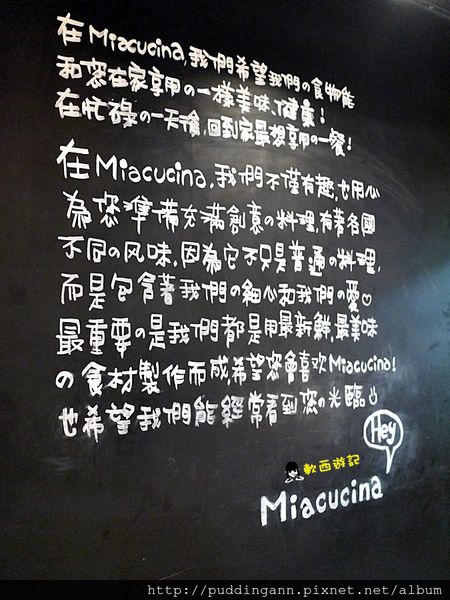 在Miacucina,我們希望我們の食物能
和您在家享用の一樣美味、健康!
在忙碌の一天後,回到家最想享用の一餐!
在Miacucina,我們不僅有趣,也用心
為您準備充滿創意の料理,有著各國
不同の风味,因為它不只是普通の料理,
而是包含著我們の細心和我們の愛♡
最重要の是我們都是用最新鮮,最美味
の食材製作而成,希望您會喜欢Miacucina!
也希望我們能經常看到您の光臨
Hey
軟西遊記
Miacucina
http://puddingann.pixnet.net/album